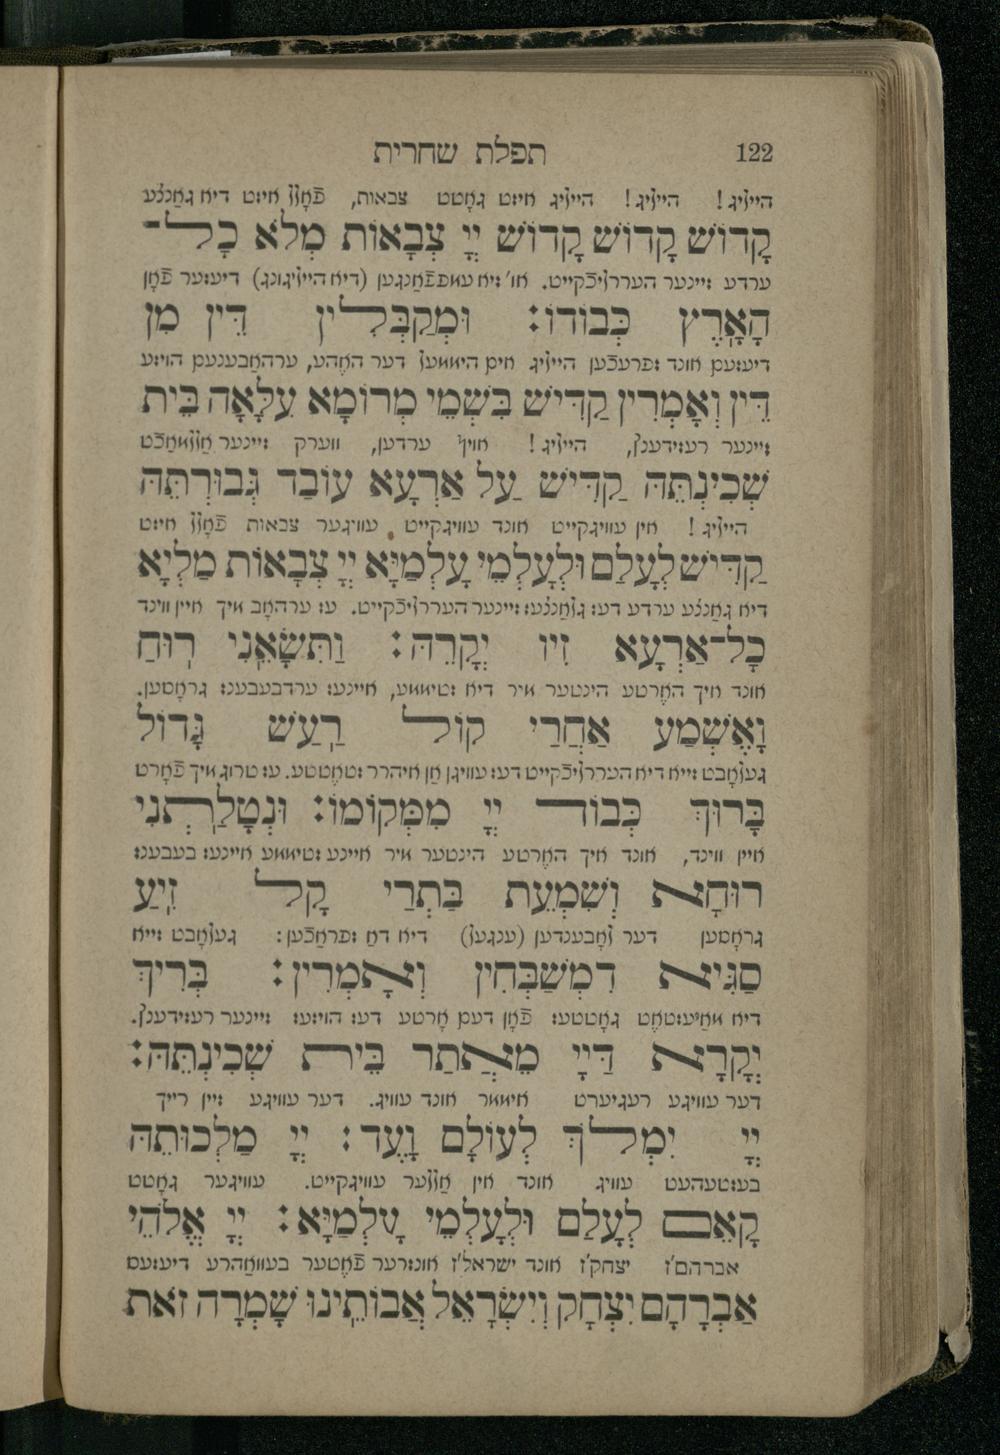 122 תפלת שחרית
הייליג! הייליג! הייליג איזט גאָטט צבאות, פֿאָלל איזט דיא גאַנצע
קָדוֹשׁ קָדוֹשׁ קָדוֹשׁ יְיָ צְבָאוֹת מְלֹא כָל־
ערדע זיינער העררליכֿקייט. או' זיא עמפּפֿאַנגען (דיא הייליגונג) דיעזער פֿאָן
הָאָרֶץ כְּבוֹדוֹ׃ וּמְקַבְּלִין דֵּין מִן
דיעזעם אונד זפרעכֿען הייליג אים היממעל דער האֶהע, ערהאַבענעם הויזע
דֵּין וְאָמְרִין קַדִּישׁ בִּשְׁמֵי מְרוֹמָא עִלָּאָה בֵּית
זיינער רעזידענץ, הייליג! אויף ערדען, ווערק זיינער אַללמאַכֿט
שְׁכִינְתֵּהּ קַדִּישׁ עַל אַרְעָא עוֹבַד גְּבוּרְתֵּהּ
הייליג! אין עוויגקייט אונד עוויגקייט, עוויגער צבאות פֿאָלל איזט
קַדִּישׁ לְעָלַם וּלְעָלְמֵי עָלְמַיָּא יְיָ צְבָאוֹת מַלְיָא
דיא גאַנצע ערדע דעז גלאַנצעז זיינער העררליכֿקייט. עז ערהאָב מיך איין ווינד
כָל־אַרְעָא זִיו יְקָרֵהּ׃ וַתִּשָּׂאֵנִי רוּחַ
אונד איך האֶרטע הינטער מיר דיא זטיממע, איינעז ערדבעבענז גראָסען.
וָאֶשְׁמַע אַחֲרַי קוֹל רַעַשׁ גָּדוֹל
געלאָבט זייא דיא העררליכֿקייט דעז עוויגן אַן איהרר זטאֶטטע. עז טרוג מיך פֿאָרט
בָּרוּךְ כְּבוֹד יְיָ מִמְּקוֹמוֹ׃ וּנְטָלַתְנִי
איין ווינד, אונד איך האֶרטע הינטער מיר איינע זטיממע איינעז בעבענז
רוּחָא וְשִׁמְעֵת בַּתְרַי קָל זִיעַ
גראָסען דער לאָבענדען (ענגעל) דיא דאַ זפראַכֿען: געלאָבט זייא
סַגִּיא דִּמְשַׁבְּחִין וְאָמְרִין׃ בְּרִיךְ
דיא מאַיעזטאֶט גאָטטעז פֿאָן דעם אָרטע דעז הויזעז זיינער רעזידענץ.
יְקָרָא דַּיְיָ מֵאֲתַר בֵּית שְׁכִינְתֵּהּ׃
דער עוויגע רעגיערט אימער אונד עוויג. דער עוויגע זיין רייך
יְיָ יִמְלֹךְ לְעוֹלָם וָעֶד׃ יְיָ מַלְכוּתֵהּ
בעזטעהעט עוויג אונד אין אַללער עוויגקייט. עוויגער גאָטט
קָאֵם לְעָלַם וּלְעָלְמֵי עָלְמַיָּא׃ יְיָ אֱלֹהֵי
אברהם'ז יצחק'ז אונד ישראל'ז אונזרער פֿאֶטער בעוואַהרע דיעזעס
אַבְרָהָם יִצְחָק וְיִשְׂרָאֵל אֲבוֹתֵינוּ שָׁמְרָה זֹאת